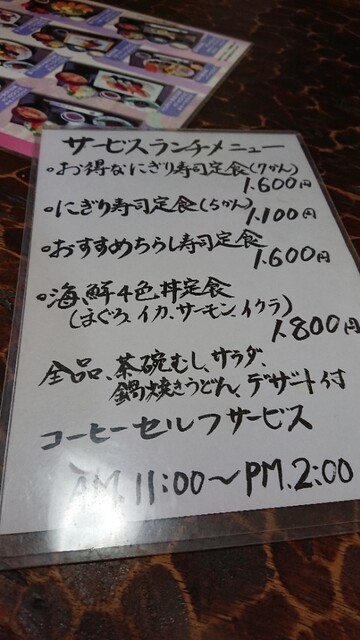 サービスランチメニュー
•お得なにぎり寿司定食(7かん)
1.600円
•にぎり寿司定食(5かん)
1.100円
•おすすめちらし寿司定食
1.600円
•海鮮4色丼定食
(まぐろ、イカ、サーモン、イクラ)
1.800円
全品、茶碗むし、サラダ、
鍋焼きうどん、デザート付
コーヒーセルフサービス
AM.11:00〜PM.2:00